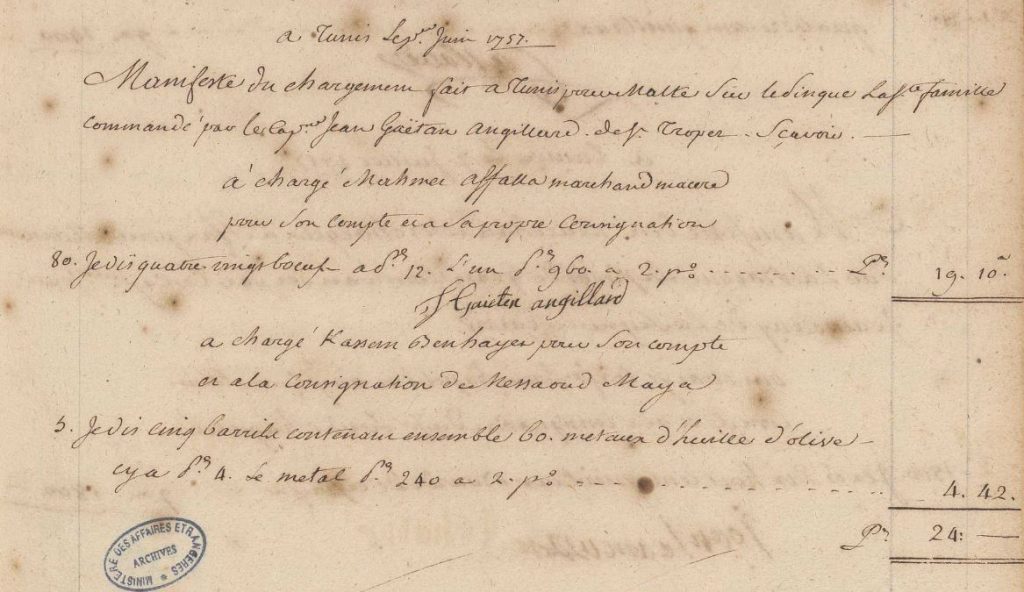 a Tunis Le p.er Juin 1757.
Manifeste du chargement fait a Tunis pour Malte Sur le Pinque La s.te famille
commandé par le Cap.ne Jean Gaëtan Angillard de S.t Tropez. Sçavoir. —
à chargé Mahmet Affatta marchand
pour Son compte et a Sa propre Consignation
80. Je dis quatre vings boeufs a p.res 12. L'un p.res 960. a 2. p.r o. P.res 19. 10.a
J Gaietan angillard
a chargé Kassem Benhayet pour Son compte
et a la Consignation de Messaoud Maya
5. Je dis cinq barrils contenant ensemble 60. metaux d'huille d'olive —
cy a p.res 4. Le metal p.res 240 a 2. p.r o. 4. 42.
P.res 24: —
MINISTERE DES AFFAIRES ETRANGERES
ARCHIVES